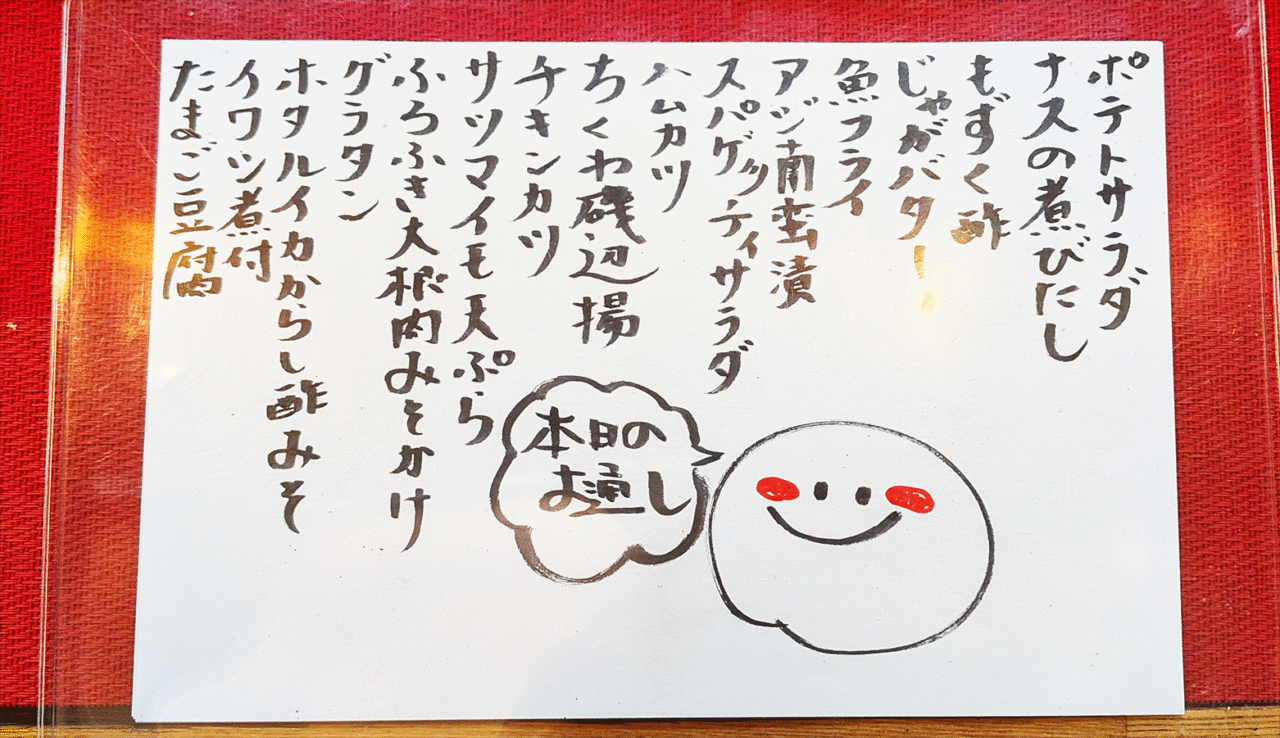 ポテトサラダ
ナスの煮びたし
もずく酢
じゃがバター
魚フライ
アジ南蛮漬
スパゲッティサラダ
ハムカツ
ちくわ磯辺揚
チキンカツ
サツマイモ天ぷら
ふろふき大根肉みそかけ
グラタン
ホタルイカからし酢みそ
イワシ煮付
たまご豆腐
本日の
お通し